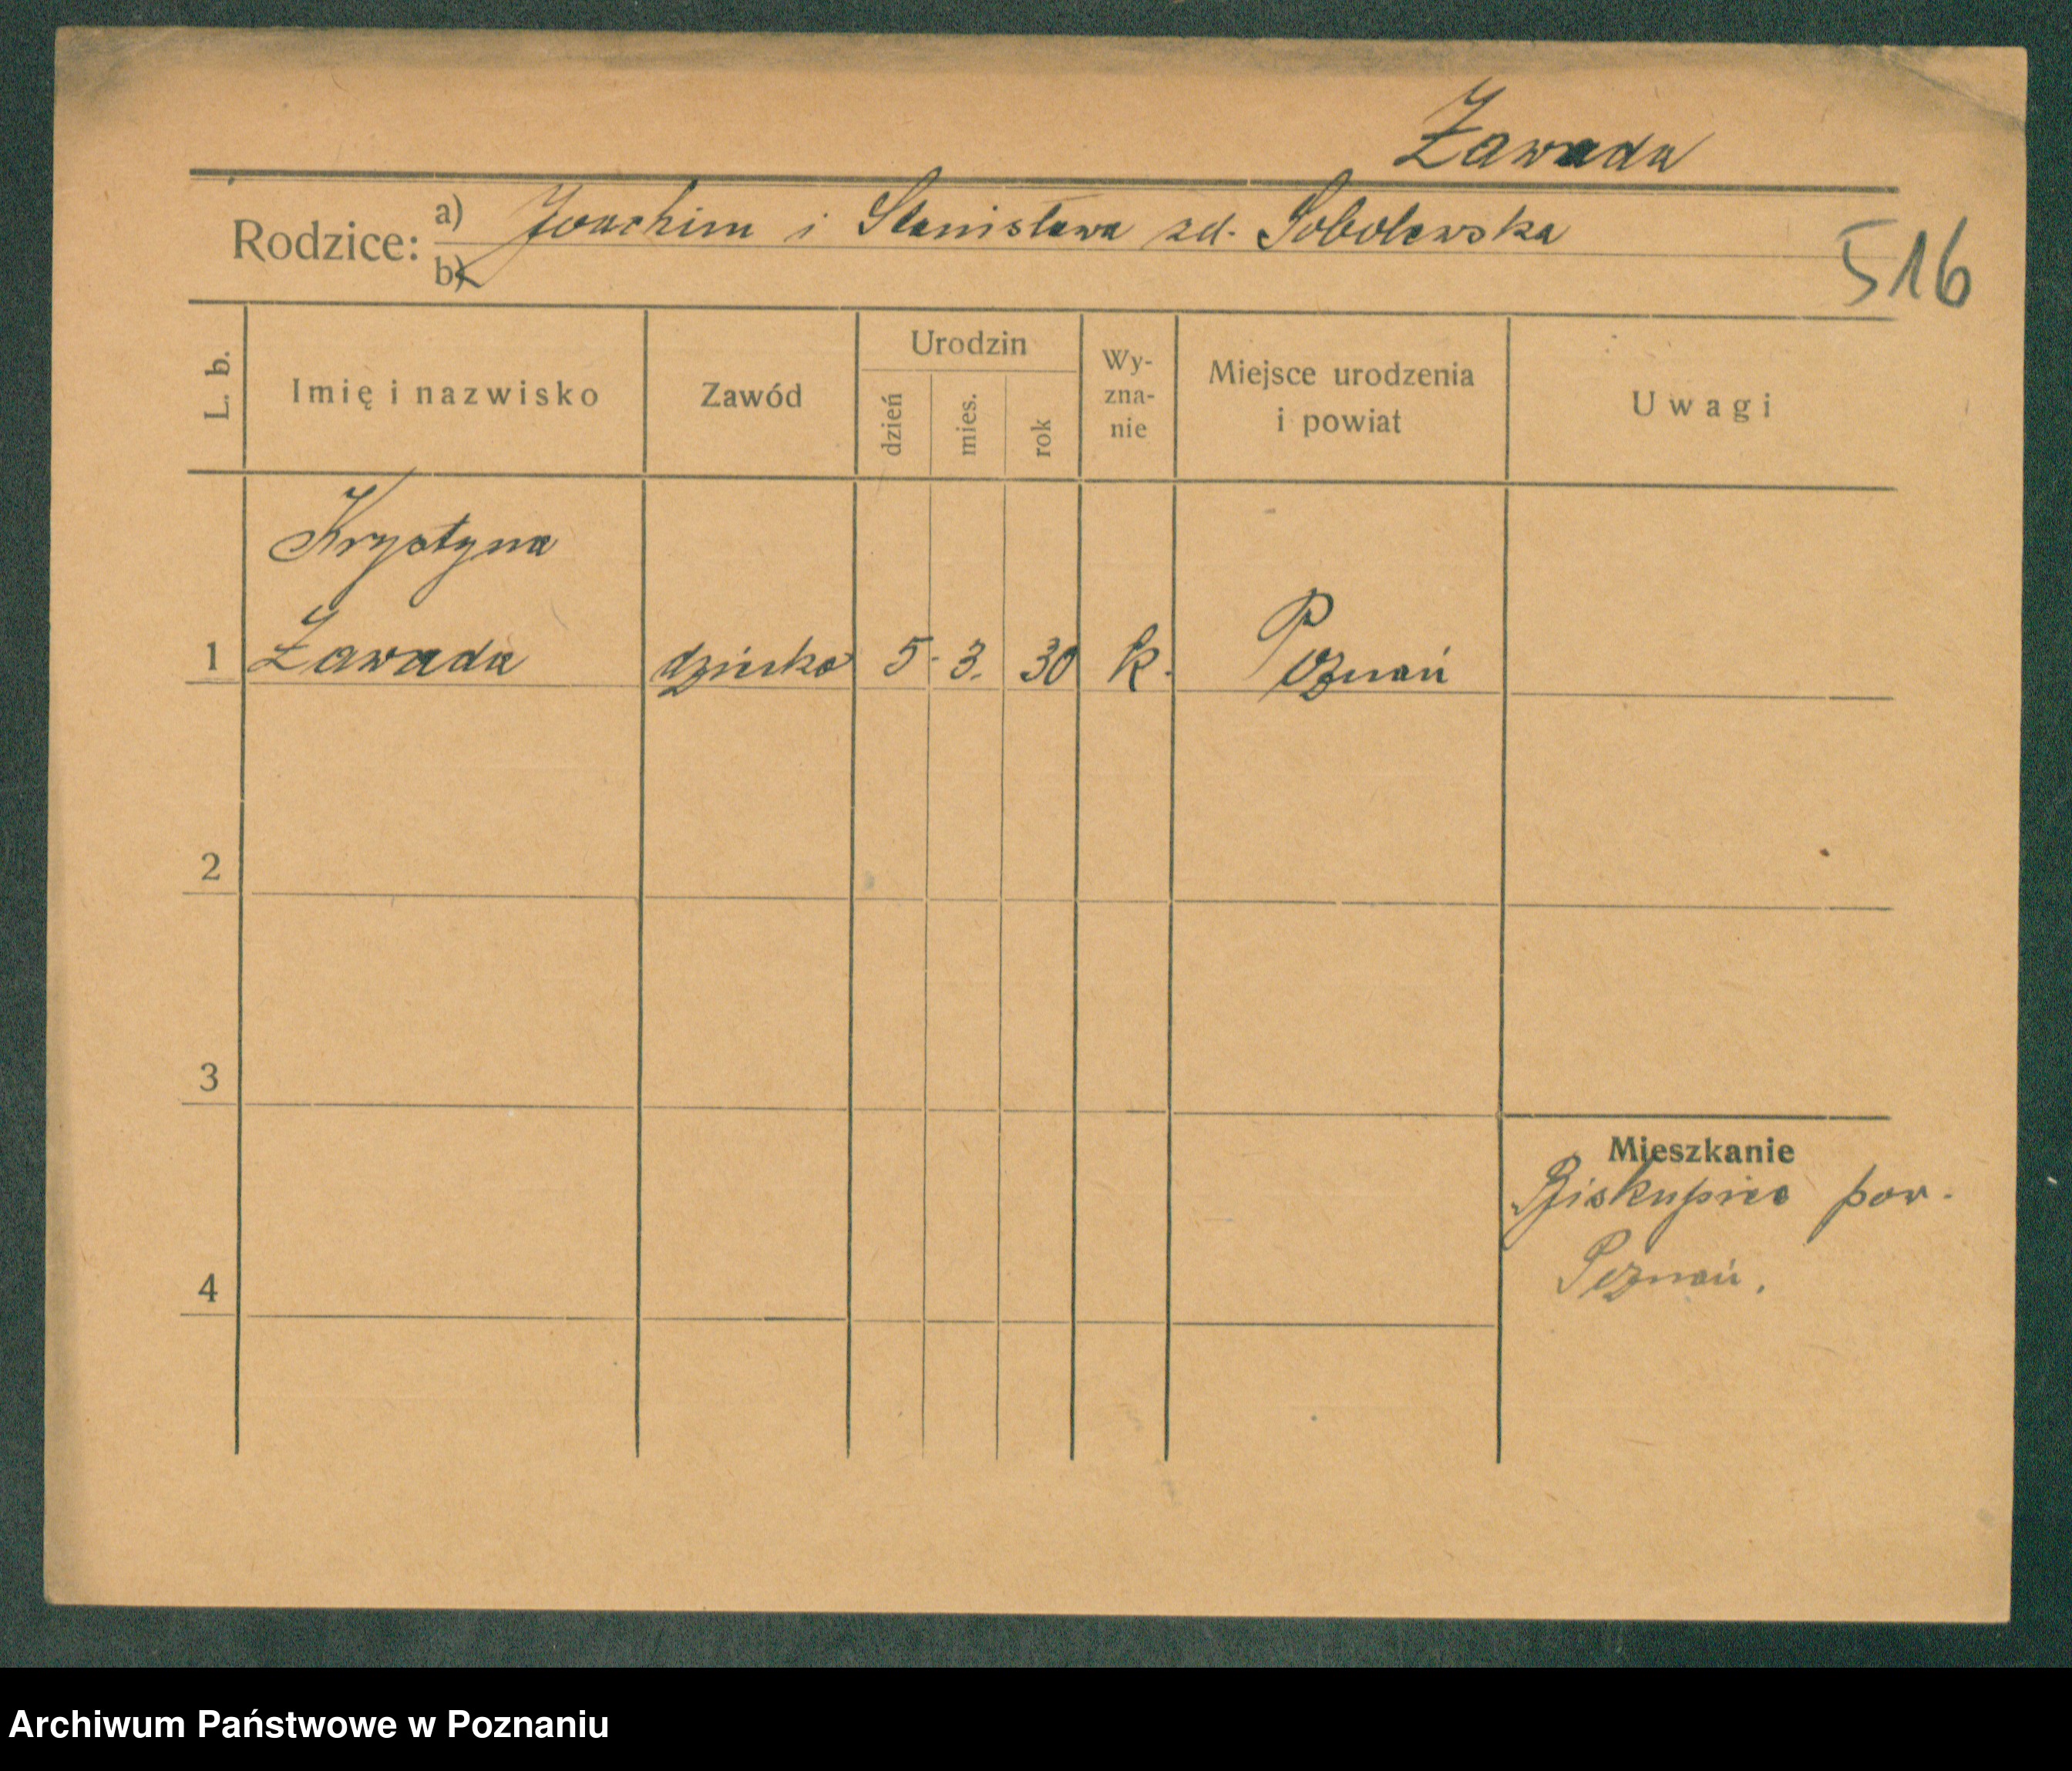 Zawada
Rodzice: a) Joachim i Stanisława zd. Sobolewska
b)
516
L. b.
Imię i nazwisko
Zawód
Urodzin
dzień
mies.
rok
Wy-
zna-
nie
Miejsce urodzenia
i powiat
Uwagi
Krystyna
1 Zawada dziecko 5. 3. 30 k. Poznań
2
3
Mieszkanie
Biskupice pow.
Poznań.
4
Archiwum Państwowe w Poznaniu